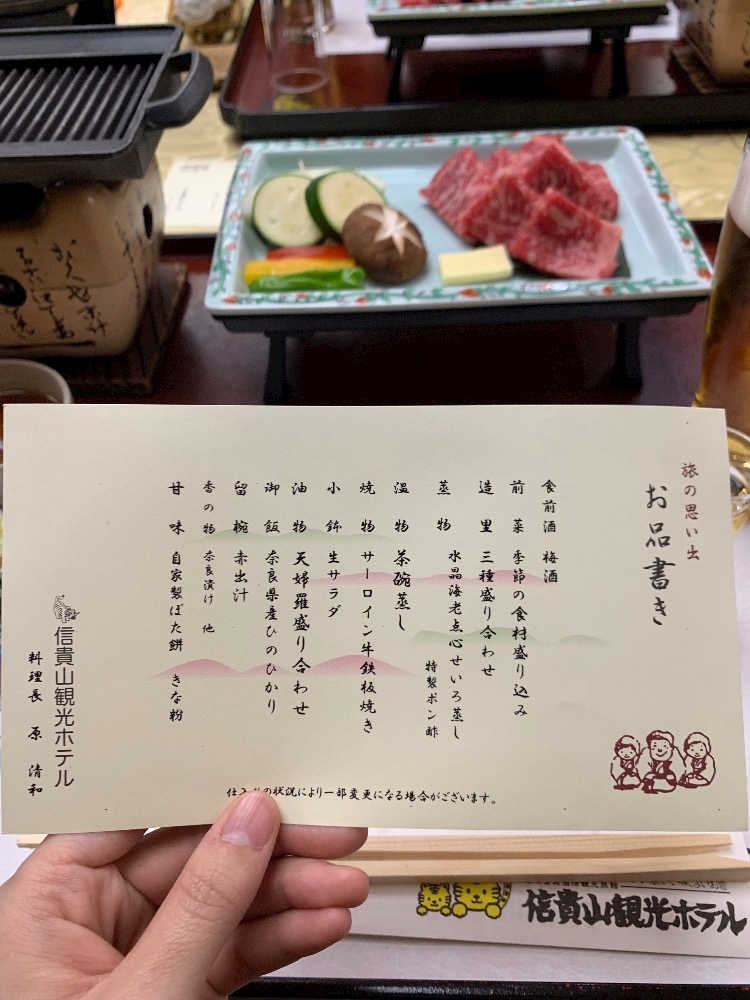 旅の思い出
お品書き
食前酒 梅酒
前菜 季節の食材盛り込み
造里 三種盛り合わせ
蒸物 水晶海老点心せいろ蒸し
特製ポン酢
温物 茶碗蒸し
焼物 サーロイン牛鉄板焼き
小鉢 生サラダ
油物 天婦羅盛り合わせ
御飯 奈良県産ひのひかり
留椀 赤出汁
香の物 奈良漬け 他
甘味 自家製ぼた餅 きな粉
信貴山観光ホテル
料理長 原 清和
の状況により一部変更になる場合がございます。
信貴山観光ホテル